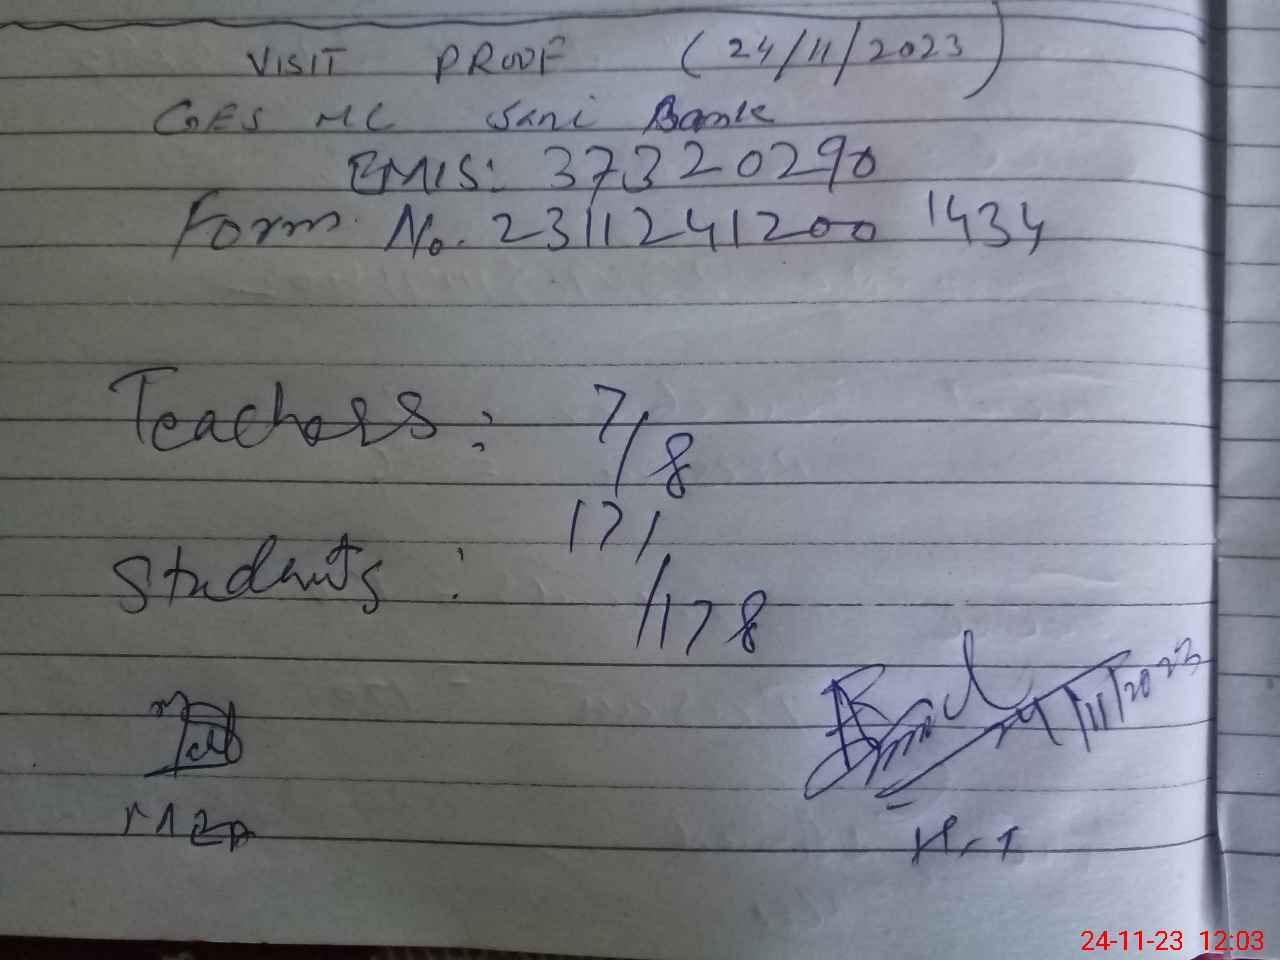 VISIT PROOF (24/11/2023)
GES MC Sani Bank
EMIS: 37320290
Form No. 23112412001434
Teachers: 7/8
Students: 171/178
24/11/2023
H.T
24-11-23 12:03